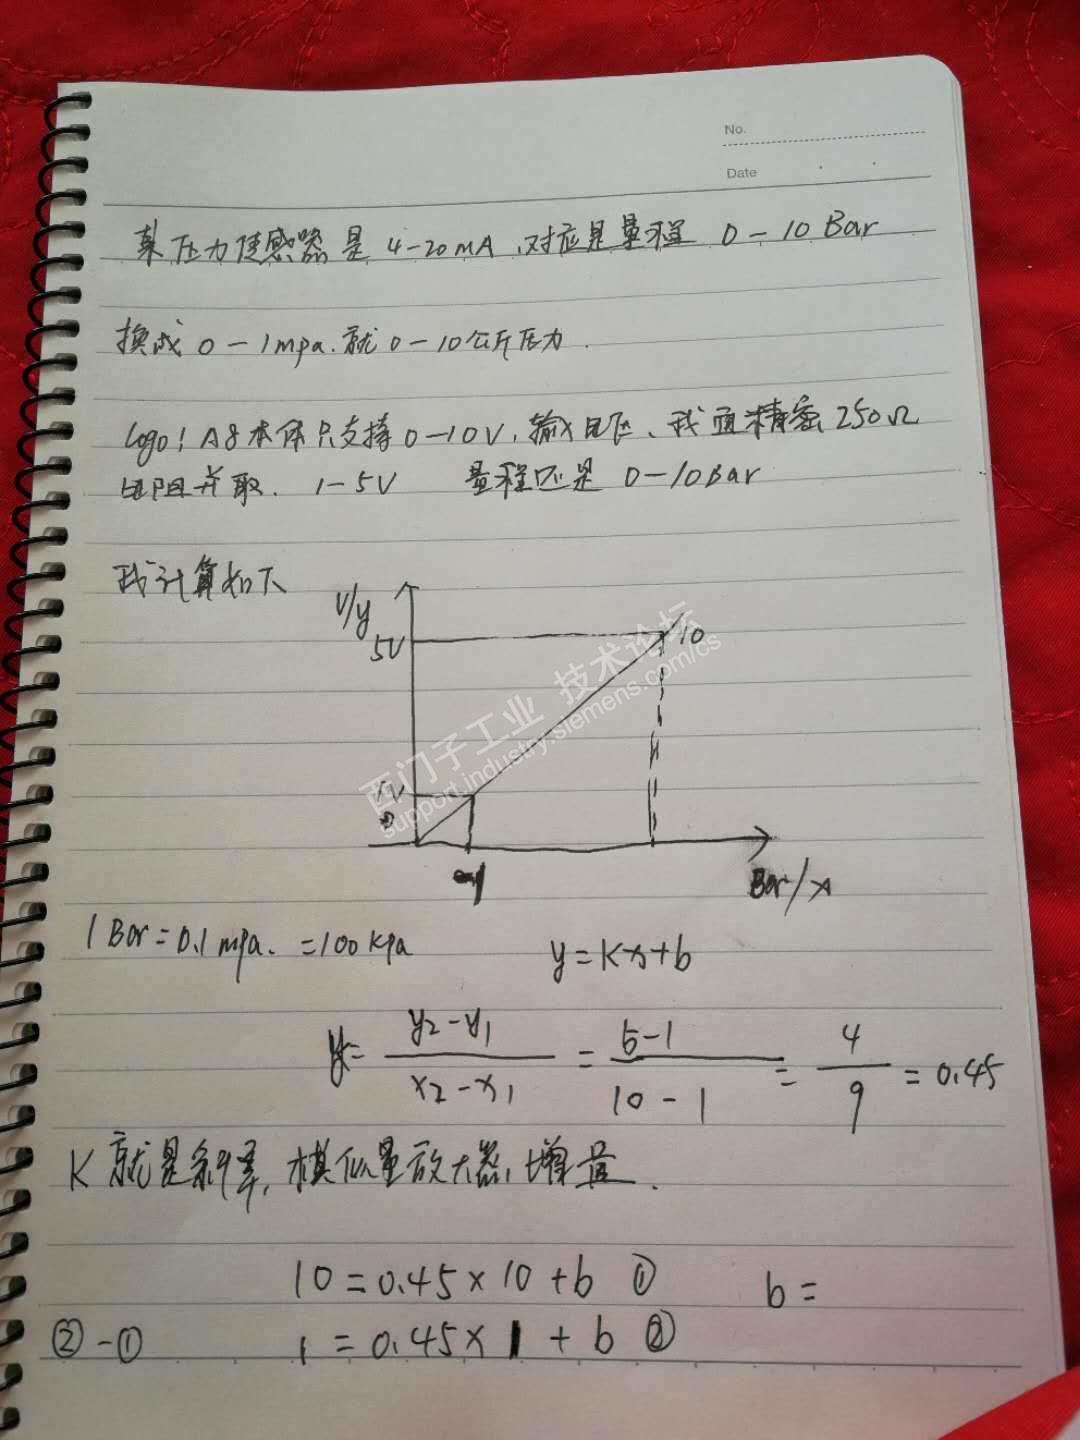 No.
Date
某压力传感器是 4-20mA,对应是量程 0-10 Bar
换成 0-1mpa.就 0-10公斤压力.
logo! A8本体只支持 0-10V,输入电压、我通精密250Ω
电阻并取. 1-5V 量程还是 0-10Bar
我计算如下
V/y
5V
10
1V
0
Bar/x
西门子工业 技术论坛
support.industry.siemens.com/cs
1 Bar=0.1mpa.=100kpa
y=Kx+b
= y2-y1 / x2-x1 = 5-1 / 10-1 = 4 / 9 = 0.45
K 就是斜率,模似量放大器,增益.
10=0.45×10+b ① b=
②-① 1=0.45×1+b ②